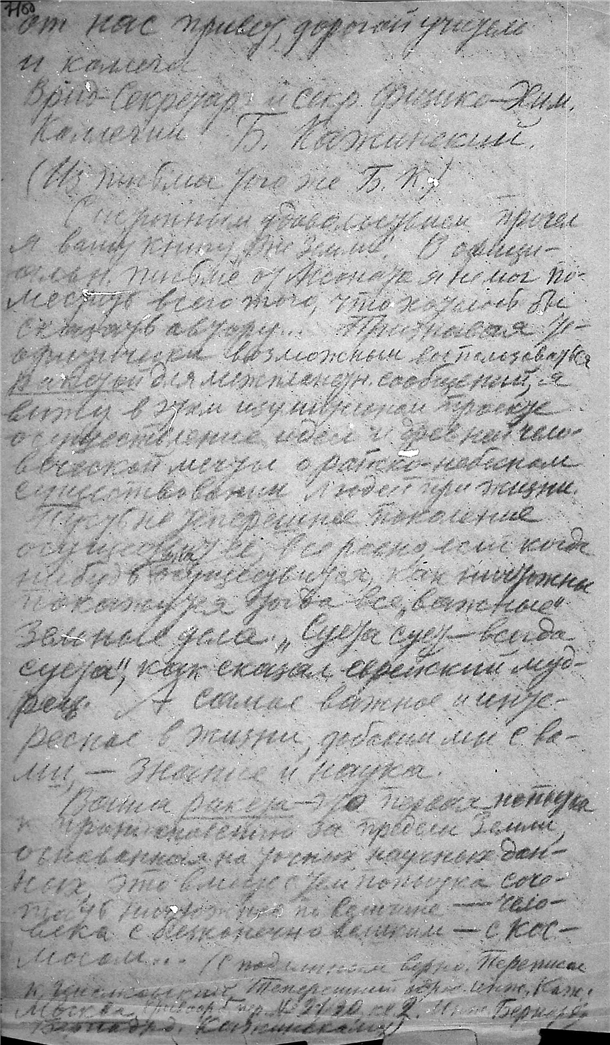 от нас привет, дорогой учитель
и коллега
Врид-Секретар. и секр. Физико-Хим.
Коллегии Б. Кажинский.
(Из письма того же Б. К.)
С огромным удовольствием прочел
я вашу книгу Вне Земли. В официи-
альн. письме от Ассоната я не мог по-
местить всего того, что хотелось бы
сказать автору... Признавая те-
оретически возможным воспользоваться
ракетой для межпланетн. сообщений, я
вижу в этом изумительном проекте
осуществление идеи и древней чело-
веческой мечты о райско-небесном
существовании людей при жизни.
Пусть не теперешнее поколение
осуществит ее, все равно, если когда
нибудь она осуществится, как ничтожны
покажутся тогда все „важные"
земные дела. „Суета сует — всегда
суета", как сказал еврейский муд-
рец. А самое важное и инте-
ресное в жизни, добавим мы с ва-
ми, — знание и наука.
Ваша ракета — это первая попытка
к проникновению за пределы Земли,
основанная на точных научных дан-
ных, это вместе с тем попытка соче-
тать ничтожное по величине — чело-
века с бесконечно великим — с Кос-
мосом... (С подлинным верно. Переписал
К. Циолковский. Теперешний адрес инж. Каж.
Москва, Тверск. пр. № 21/20 кв 2. Инж. Бернарду
Бернардов. Кажинскому)